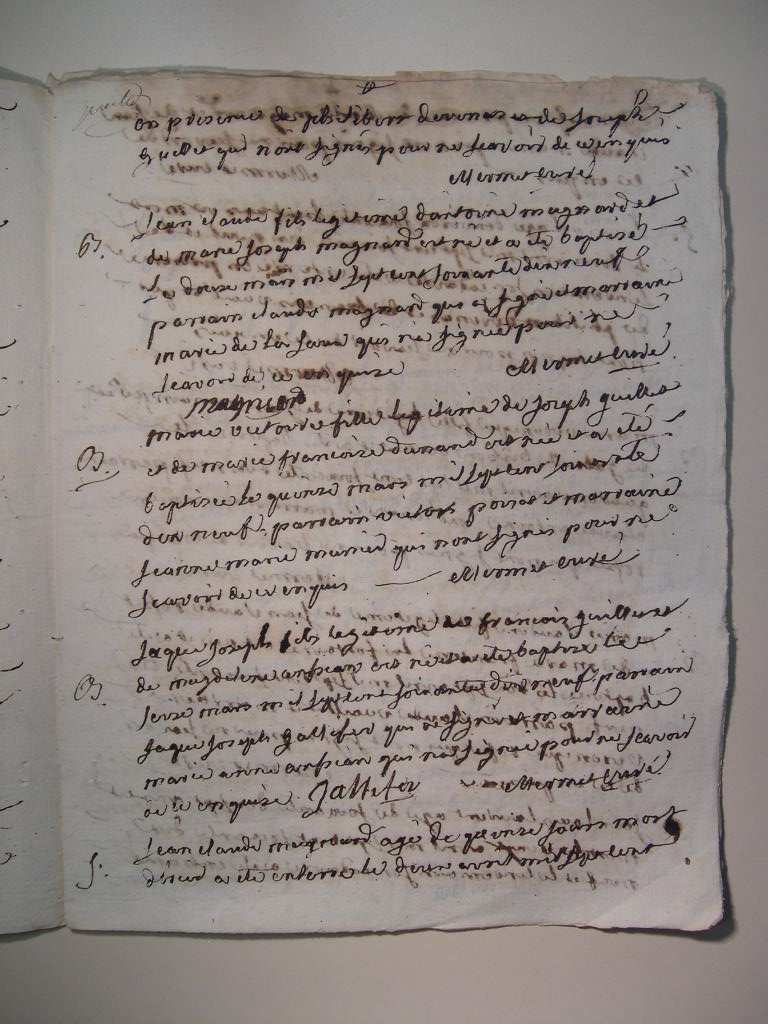 en presence de philibert devenas et de Joseph
guillet qui n'ont signés pour ne scavoir de ce enquis
Mermet curé
Jean claude fils legitime d'antoine magnard et
B. de marie Joseph magnard est né et a été baptisé
Le douze mars mil sept cent soixante dix neuf
parrain claude magnard qui a signé et marraine
marie de la qui n'a signée pour ne
scavoir de ce enquise Mermet curé
magniard
marie victoire fille legitime de Joseph guillet
B. et de marie francoise dunand est née et a été
baptisée le quinze mars mil sept cent soixante
dix neuf parrain victor poirat et marraine
Jeanne marie munier qui n'ont signés pour ne
scavoir de ce enquis Mermet curé
Jaque Joseph fils legitime de francois guillet et
B. de magdelene anscian est né et a été baptisé le
seize mars mil sept cent soixante dix neuf parrain
Jaque Joseph gallifer qui a signé et marraine
marie anne anscian qui n'a signée pour ne scavoir
de ce enquise Jallifer Mermet curé
Jean claude magnard agé de quinze jours mort
S. d'hier a été enterré le deux avril mil sept cent